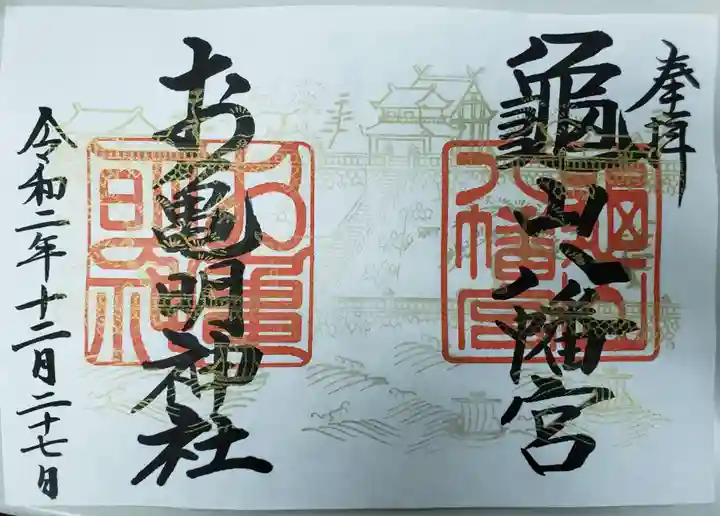 奉拝
龜山八幡宮
お亀明神社
令和二年十二月二十七日